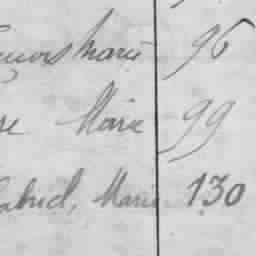 Marie 96
Marie 99
Gabriel, Marie 130